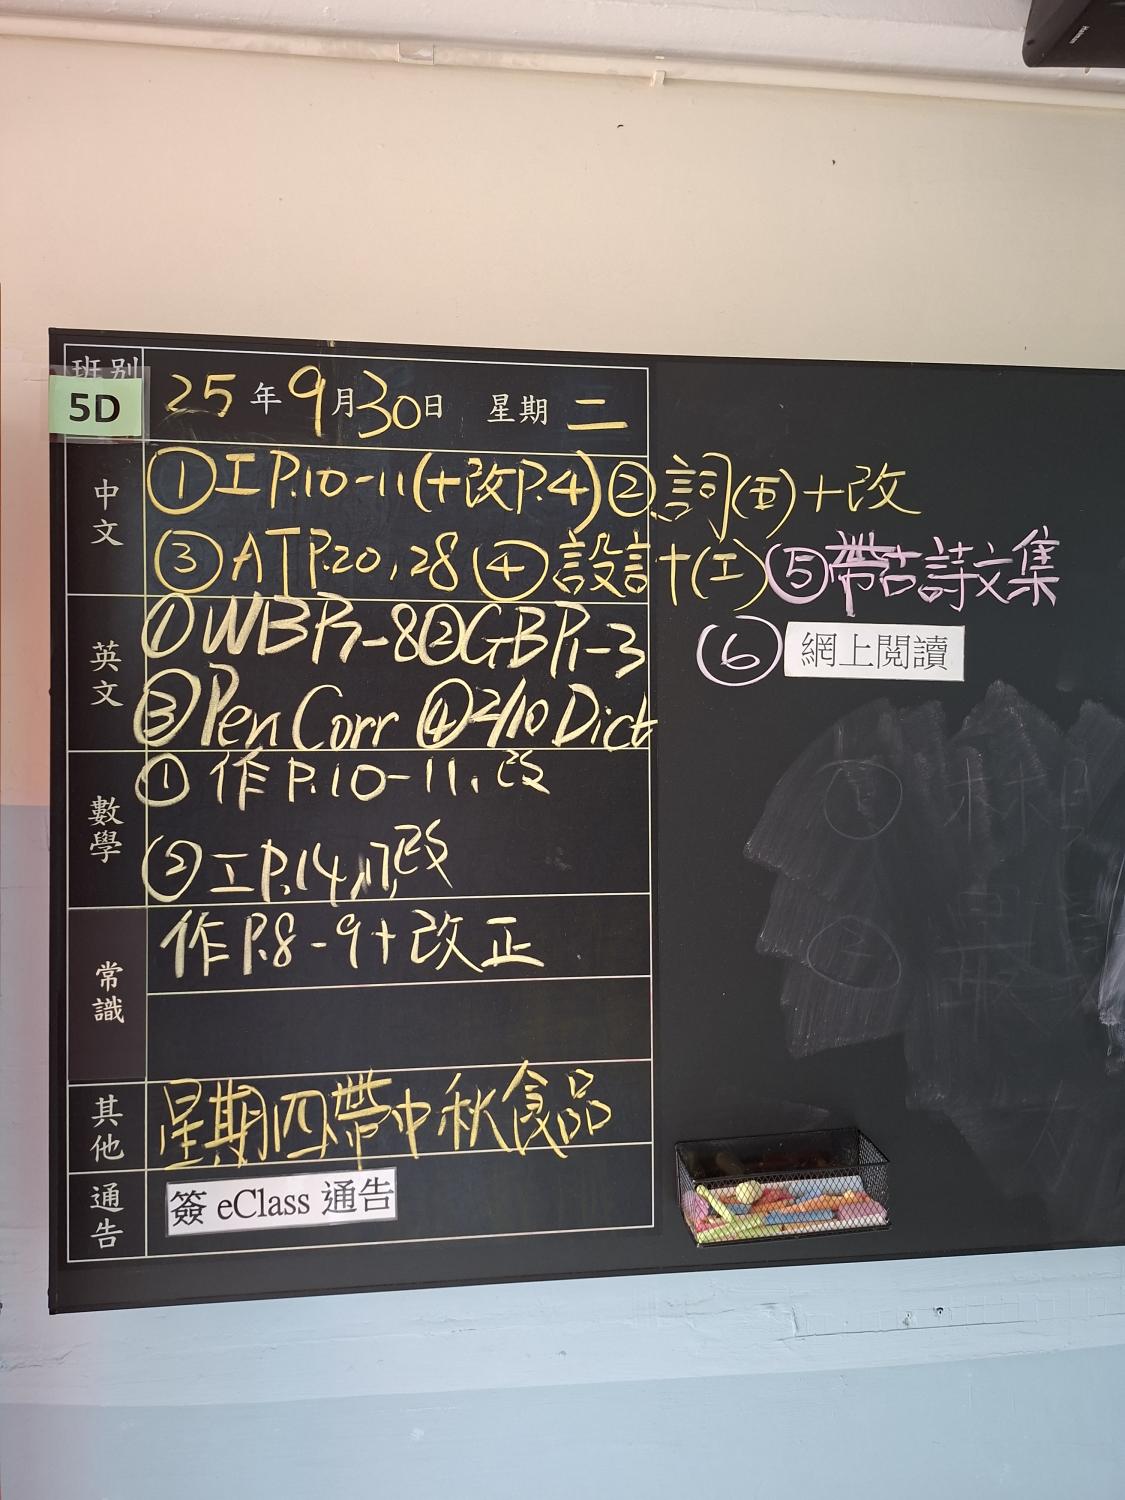 班別
5D
25年9月30日 星期二
中文
①工P.10-11(+改P.4)②詞(五)+改
③ATP.20,28④設計十(工)⑤帶古詩文集
⑥網上閱讀
英文
①WBP7-8②GBP1-3
③Pen Corr ④2/10 Dict
數學
①作P.10-11,改
②工P.14,17,改
常識
作P.8-9+改正
其他
星期四帶中秋食品
通告
簽 eClass 通告